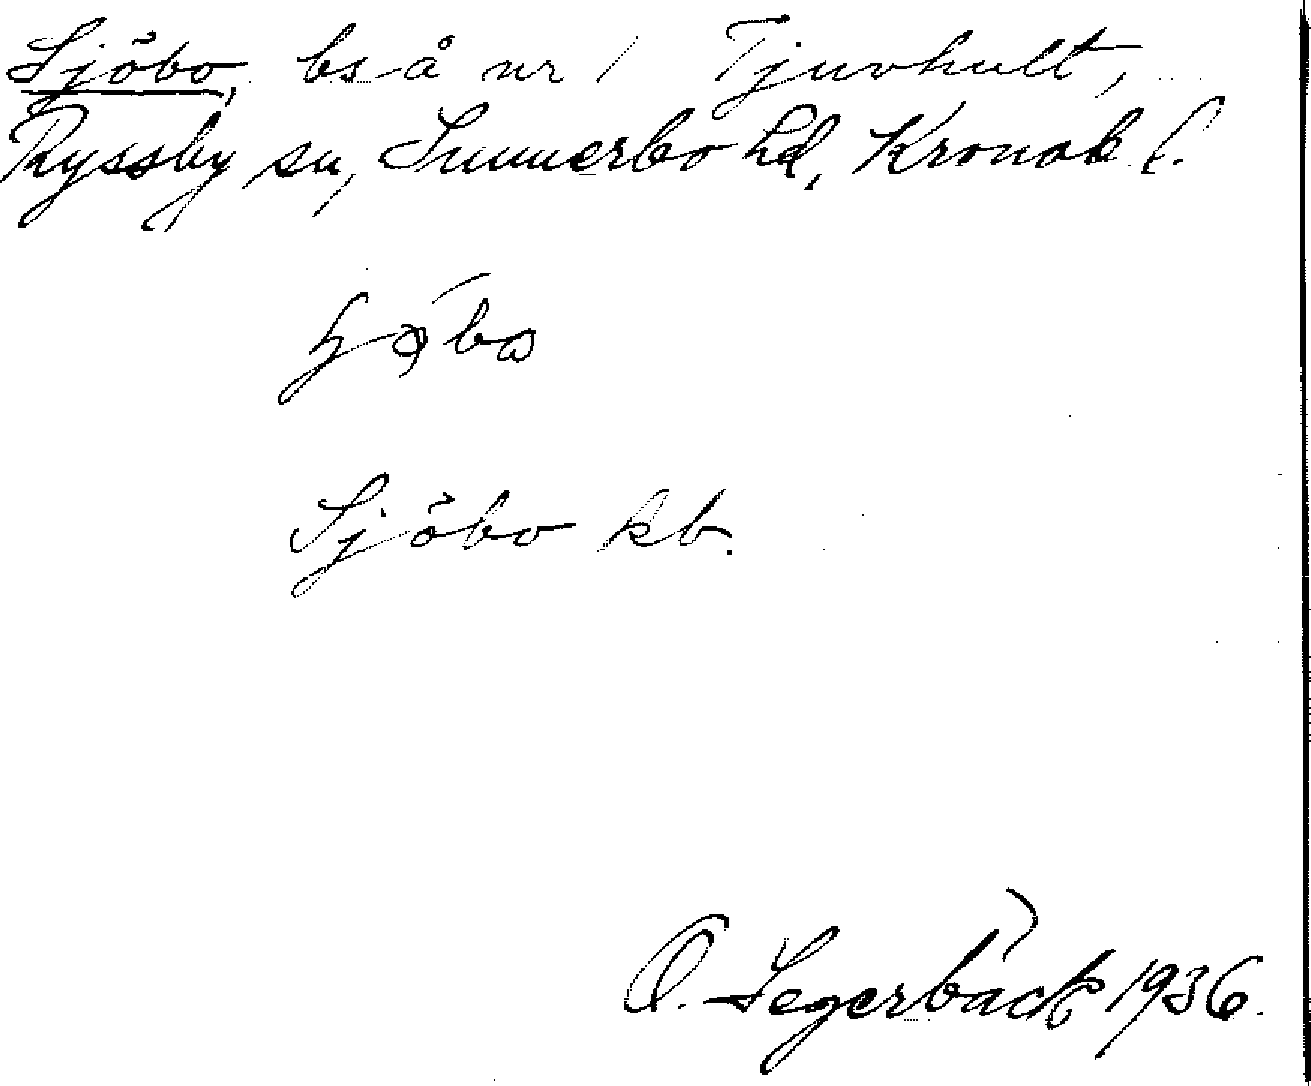 Sjöbo, bs å nr 1 Tjuvhult,
Ryssby sn, Sunnerbo hd, Kronob l.
Sjöbo kb.
B. Segerbäck 1936.